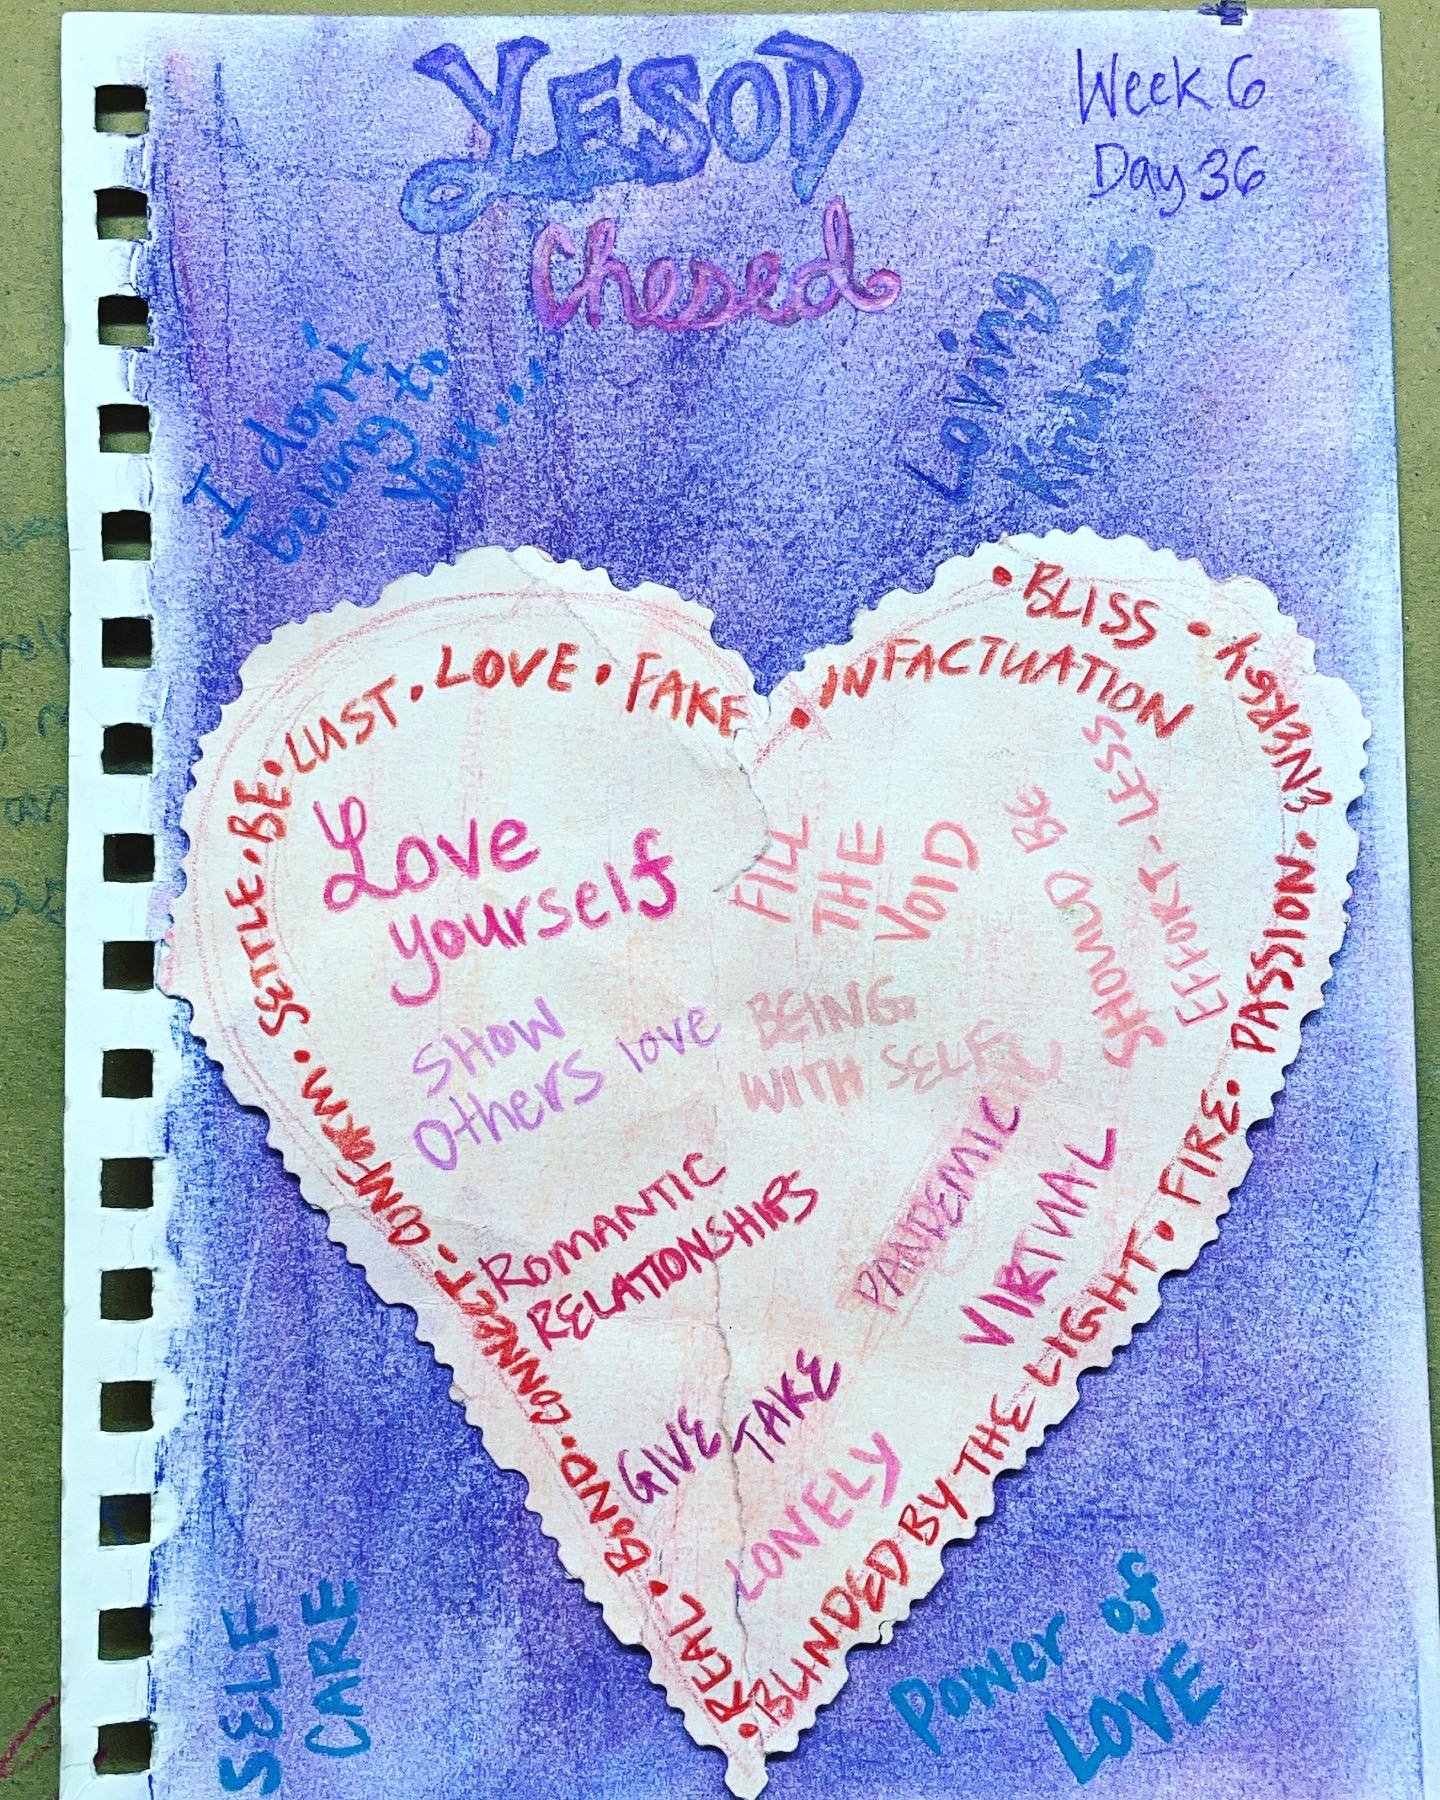 YESOD
Chesed
Week 6
Day 36
I don't
belong to
you...
Loving
Kindness
REAL • BOND • CONNECT • CONFORM • SETTLE • BE • LUST • LOVE • FAKE
• INFACTUATION
• BLISS • ENERGY • PASSION • FIRE •
• BLINDED BY THE LIGHT •
Love
yourself
SHOW
OtHERS love
ROMANTIC
RELATIONSHIPS
GIVE
TAKE
LONELY
FILL
THE
VOID
BEING
WITH SELF
SHOULD BE
EFFORT-LESS
PANDEMIC
VIRTUAL
SELF
CARE
Power of
LOVE